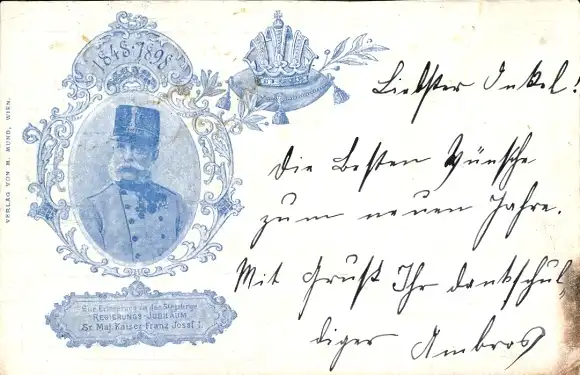 1848·1898
VERLAG VON M. MUND, WIEN.
Zur Erinnerung an das 50jährige
REGIERUNGS-JUBILÄUM
Sr. Maj. Kaiser Franz Josef I.
Liebster Onkel!
Die besten Wünsche
zum neuen Jahre.
Mit Gruß Ihr dankschul-
diger Ambros